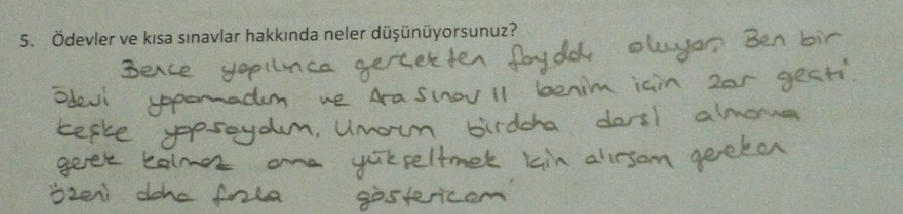 5. Ödevler ve kısa sınavlar hakkında neler düşünüyorsunuz?
Bence yapılınca gerçekten faydalı oluyor. Ben bir
ödevi yapamadım ve Ara Sınav II benim için zor geçti.
Keşke yapsaydım. Umarım birdaha dersi almama
gerek kalmaz ama yükseltmek için alırsam gereken
özeni daha fazla göstericem